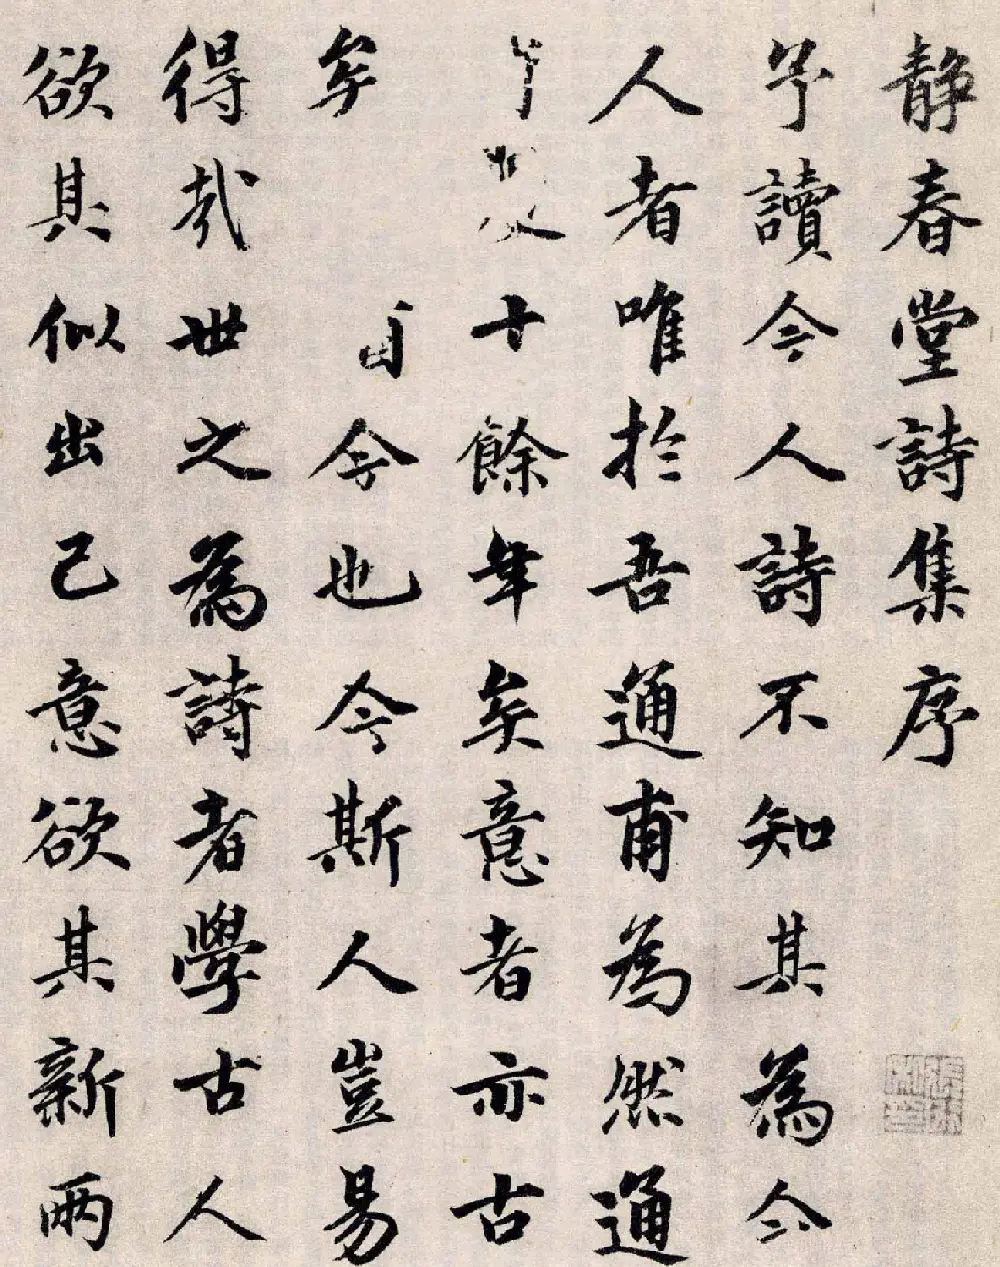 靜春堂詩集序
予讀今人詩不知其為今
人者唯於吾通甫為然通
十餘年矣意者亦古
矣今也今斯人豈易
得哉世之為詩者學古人
欲其似出己意欲其新兩